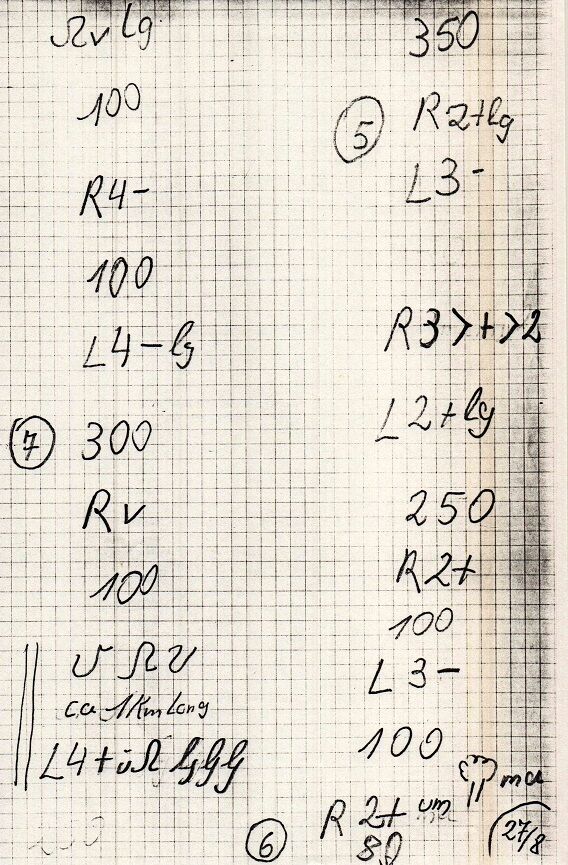 ΩvLg
100
R4-
100
L4-lg
7 300
Rv
100
v Ω v
ca 1Km Long
L4+üΩ lggg
350
5 R2+lg
L3-
R3>+>2
L2+lg
250
R2+
100
L3-
100
6 R 2+ um
ma
27/8